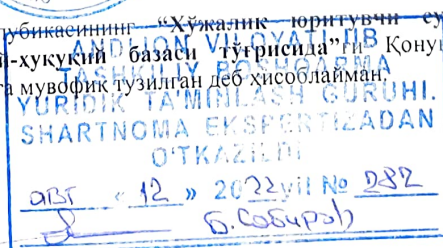 рубикасининг “Хўжалик юритувчи су
й-ҳуқуқий базаси тўғрисида”ги Қону
га мувофиқ тузилган деб ҳисоблайман.
ANDIJON VILOYATI IIB
TASHKILIY BOSHQARMA
YURIDIK TA'MINLASH GURUHI.
SHARTNOMA EKSPERTIZADAN
O'TKAZILDI
авг « 12 » 2022 yil № 282
Б.Собиров